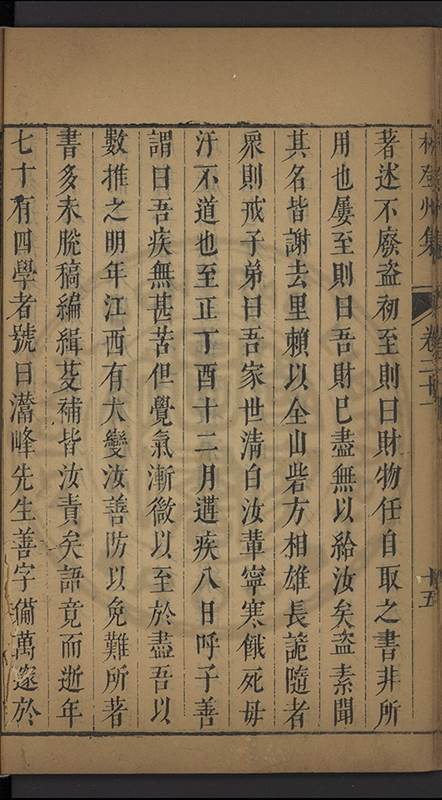 林登州集 卷二十一 十五
著述不廢盜初至則曰財物任自取之書非所
用也屢至則曰吾財已盡無以給汝矣盜素聞
其名皆謝去里賴以全山砦方相雄長詭隨者
衆則戒子弟曰吾家世清白汝軰寧寒餓死毋
汙不道也至正丁酉十二月遘疾八日呼子善
謂曰吾疾無甚苦但覺氣漸微以至於盡吾以
數推之明年江西有大變汝善防以免難所著
書多未脫稿編緝芟補皆汝責矣語竟而逝年
七十有四學者號曰潛峰先生善字偹萬邃於